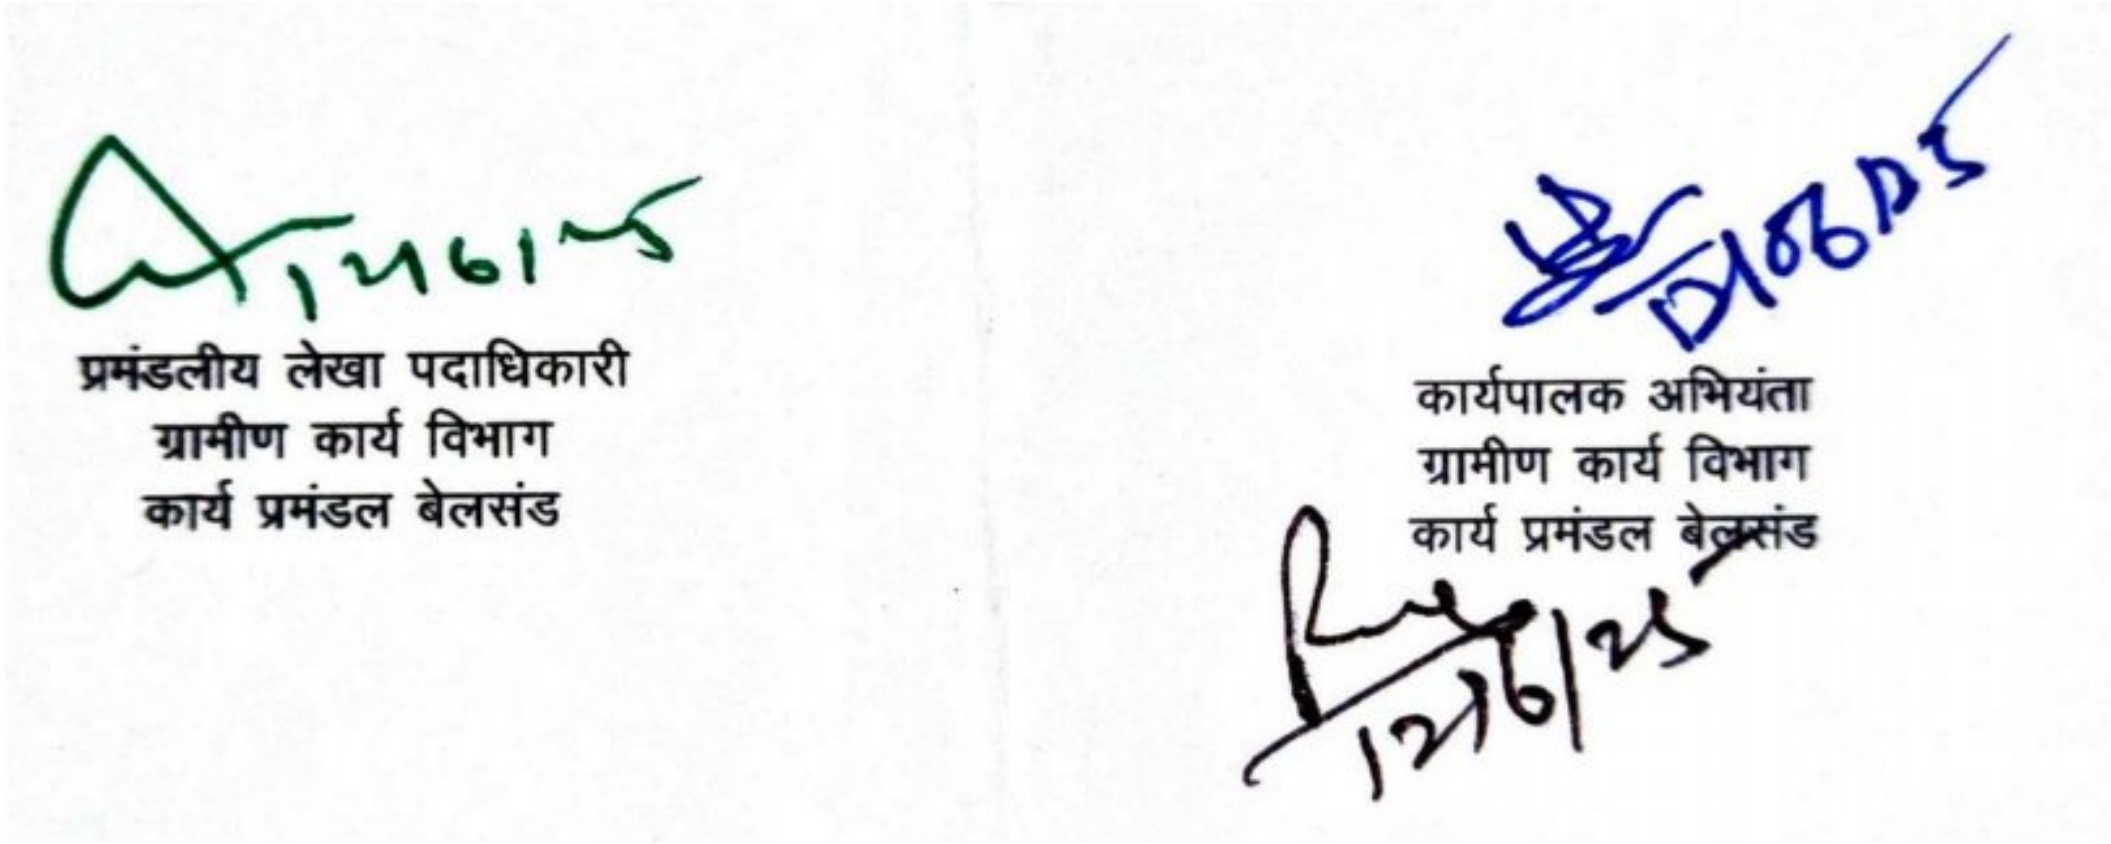 12/6/25
प्रमंडलीय लेखा पदाधिकारी
ग्रामीण कार्य विभाग
कार्य प्रमंडल बेलसंड
12/06/25
कार्यपालक अभियंता
ग्रामीण कार्य विभाग
कार्य प्रमंडल बेलसंड
12/6/25